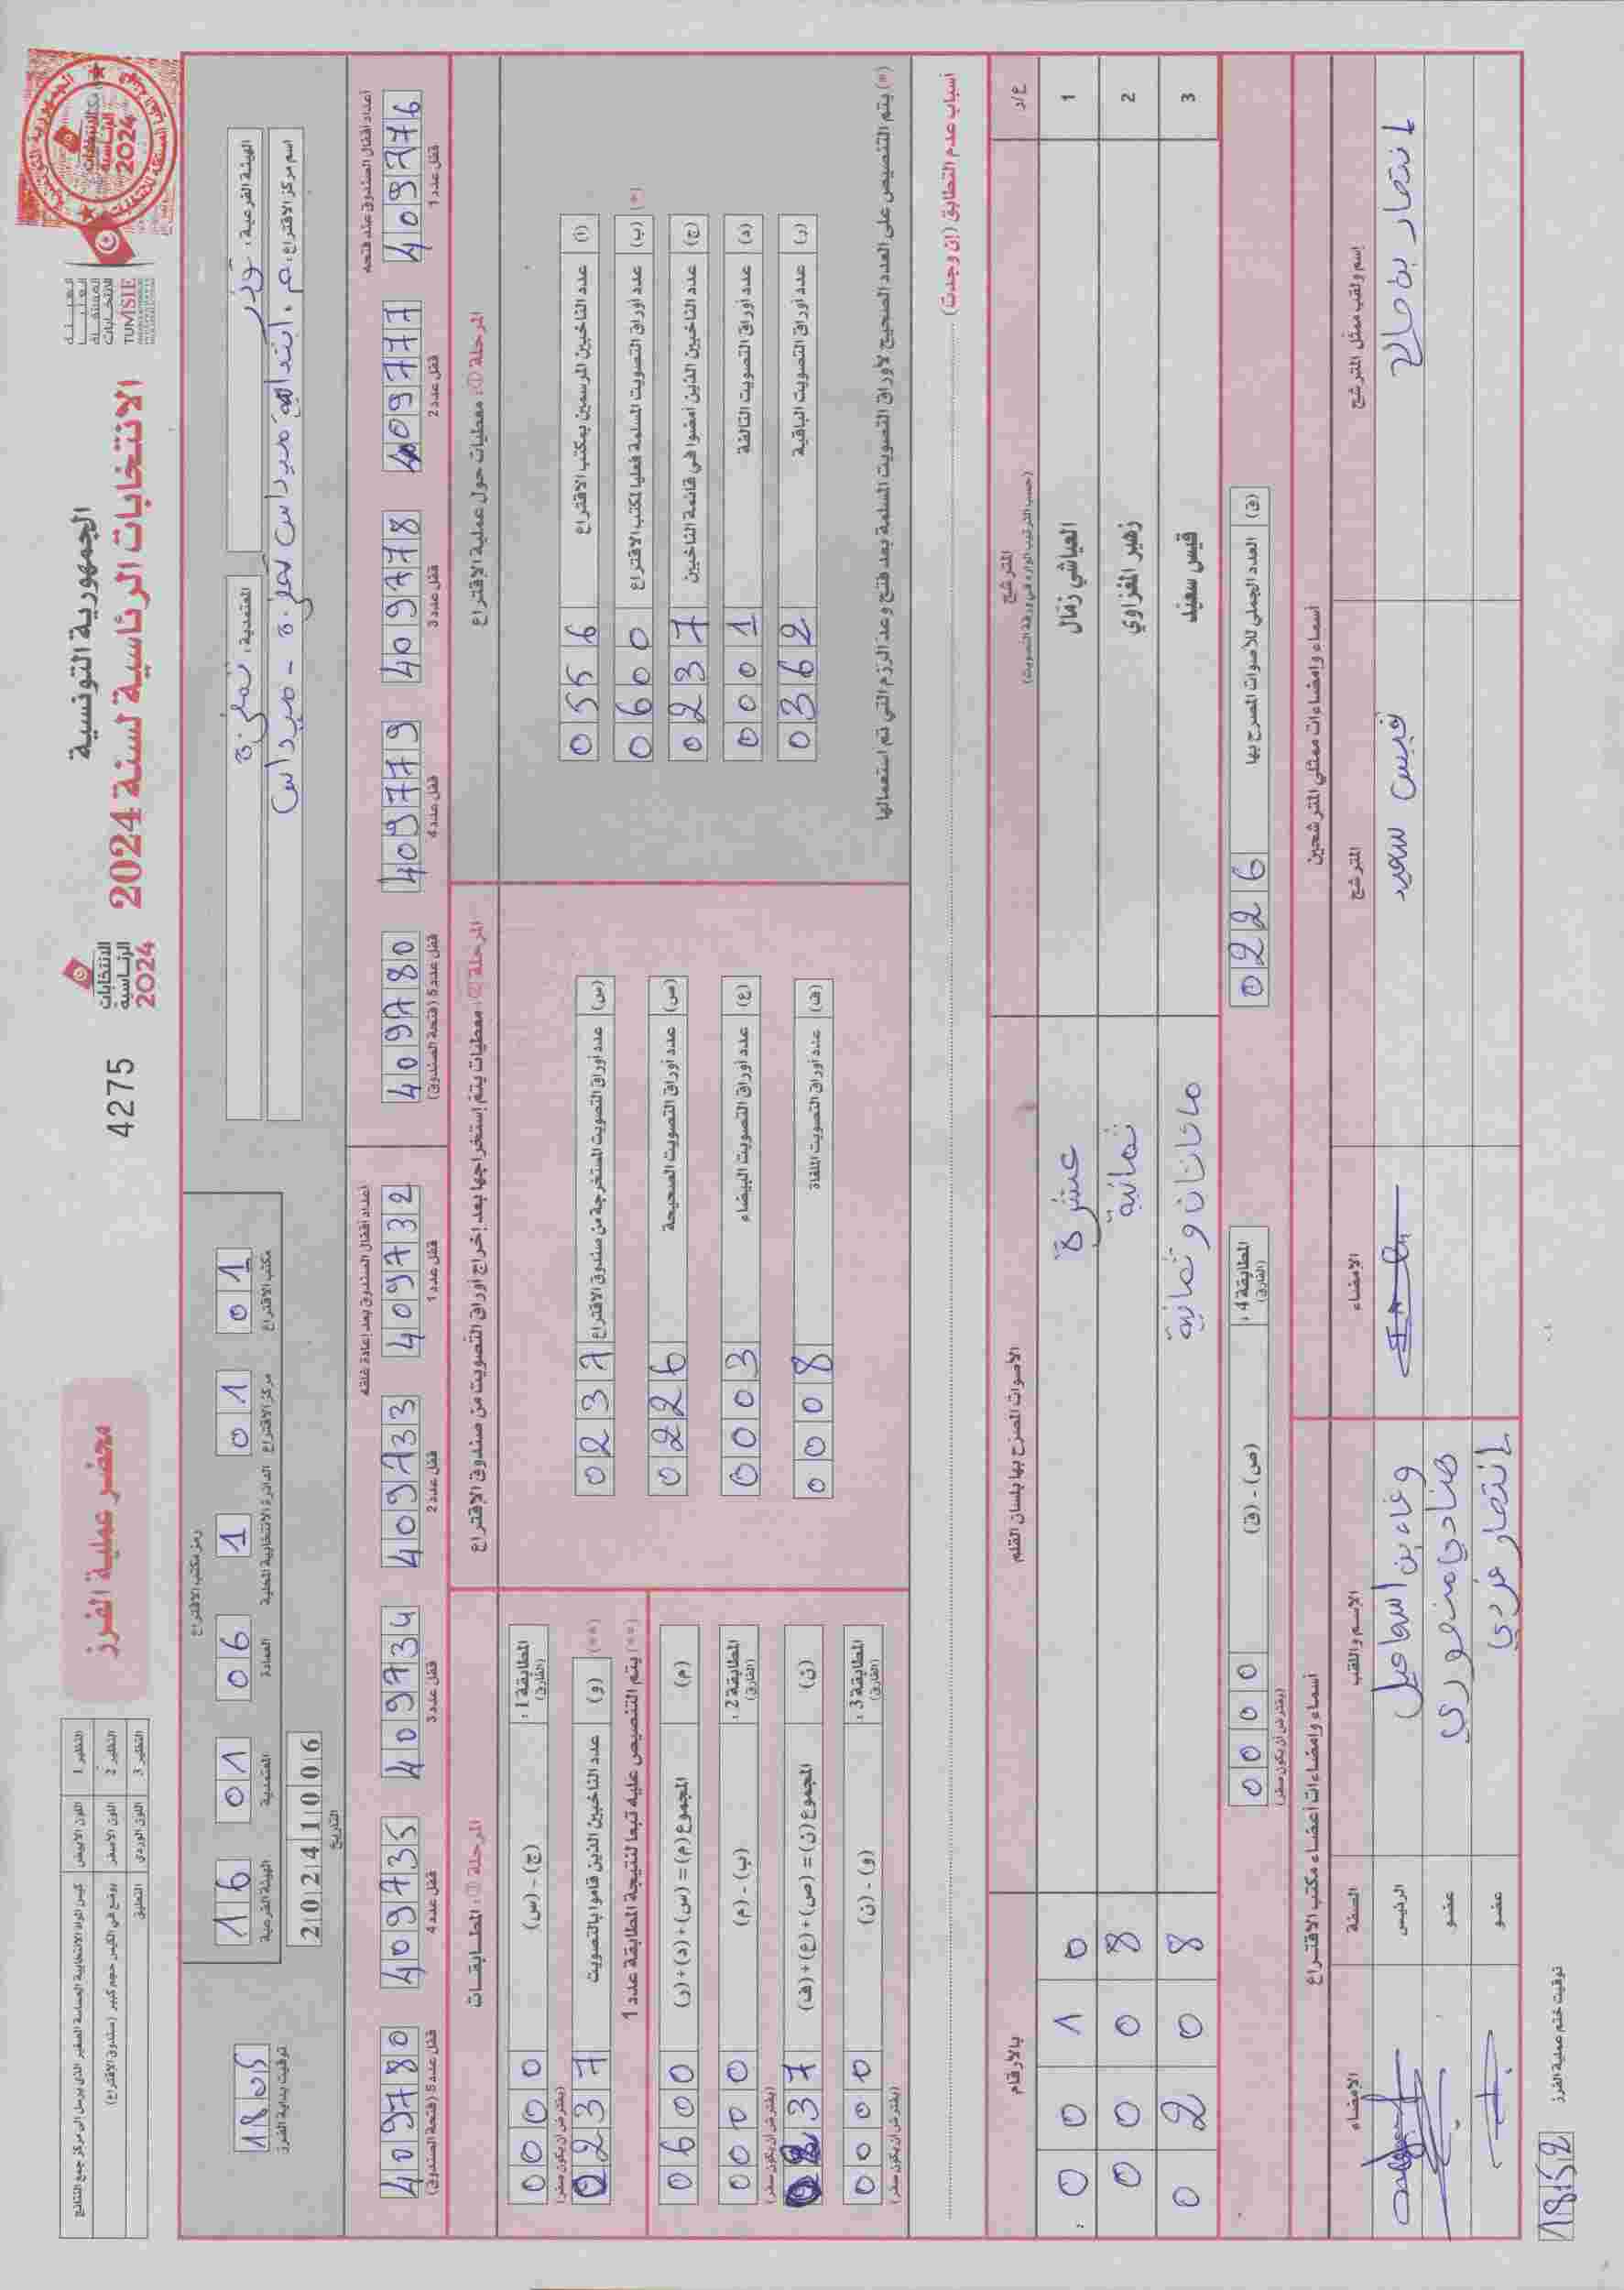 الجمهورية التونسية
الانتخابات الرئاسية لسنة 2024
الانتخابات
الرئاسية
2024
4275
محضر عملية الفرز
النظير 1 اللون الأبيض كيس المواد الانتخابية الحساسة الصغير الذي يرسل إلى مركز جمع النتائج
النظير 2 اللون الأصفر يوضع في الكيس حجم كبير (صندوق الاقتراع)
النظير 3 اللون الوردي التعليق
الهيئة الفرعية: توزر
المعتمدية: تمغزة
اسم مركز الاقتراع: م. ابتدائية ميداس تمغزة - ميداس
رمز مكتب الاقتراع
16 01 06 1 01 01
الهيئة الفرعية المعتمدية العمادة الدائرة الانتخابية المحلية مركز الاقتراع مكتب الاقتراع
20241006
التاريخ
18 05
توقيت بداية الفرز
أعداد أقفال الصندوق عند فتحه
409776 409777 409778 409779 409780
قفل عدد 1 قفل عدد 2 قفل عدد 3 قفل عدد 4 قفل عدد 5 (فتحة الصندوق)
أعداد أقفال الصندوق بعد إعادة غلقه
409732 409733 409734 409735 409780
قفل عدد 1 قفل عدد 2 قفل عدد 3 قفل عدد 4 قفل عدد 5 (فتحة الصندوق)
المرحلة 1: معطيات حول عملية الاقتراع
(أ) عدد الناخبين المرسمين بمكتب الاقتراع 0556
(ب) عدد أوراق التصويت المسلمة فعليا لمكتب الاقتراع 0600 (*)
(ج) عدد الناخبين الذين أمضوا في قائمة الناخبين 0237
(د) عدد أوراق التصويت التالفة 0001
(ر) عدد أوراق التصويت الباقية 0362
(*) يتم التنصيص على العدد الصحيح لأوراق التصويت المسلمة بعد فتح وعد الرزم التي تم استعمالها
المرحلة 2: معطيات يتم إستخراجها بعد إخراج أوراق التصويت من صندوق الاقتراع
(س) عدد أوراق التصويت المستخرجة من صندوق الاقتراع 0237
(ص) عدد أوراق التصويت الصحيحة 0226
(ع) عدد أوراق التصويت البيضاء 0003
(ف) عدد أوراق التصويت الملغاة 0008
المرحلة 3: المطابقات
المطابقة 1: (الفارق) (ج) - (س) 0000
(يفترض أن يكون صفر)
(**) (و) عدد الناخبين الذين قاموا بالتصويت 0237
(**) يتم التنصيص عليه تبعا لنتيجة المطابقة عدد 1
(م) المجموع (م) = (س) + (د) + (ر) 0600
المطابقة 2: (الفارق) (ب) - (م) 0000
(يفترض أن يكون صفر)
(ن) المجموع (ن) = (ص) + (ع) + (ف) 0237
المطابقة 3: (الفارق) (و) - (ن) 0000
(يفترض أن يكون صفر)
أسباب عدم التطابق (إن وجدت)
ع/ر المترشح الأصوات المصرح بها بلسان القلم بالأرقام
(حسب الترتيب الوارد في ورقة التصويت)
1 العياشي زمال عشرة 0010
2 زهير المغزاوي ثمانية 0008
3 قيس سعيد مائتان وثمانية 0208
(ق) العدد الجملي للأصوات المصرح بها 0226
المطابقة 4: (الفارق) (ص) - (ق) 0000
(يفترض أن يكون صفر)
أسماء وإمضاءات ممثلي المترشحين
إسم ولقب ممثل المترشح المترشح الإمضاء
انتصار بن صالح قيس سعيد
أسماء وإمضاءات أعضاء مكتب الاقتراع
الإسم واللقب الصفة الإمضاء
وفاء بن اسماعيل الرئيس
عضو
عضو
توقيت ختم عملية الفرز 18 52